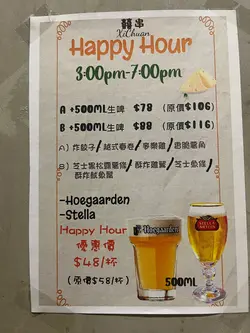 囍串
XiChuan
Happy Hour
3:00pm-7:00pm
A +500ML生啤 $78 (原價$106)
B +500ML生啤 $88 (原價$116)
A) 炸餃子/越式春卷/麥樂雞/脆脆龍角
B) 芝士黑松露薯條/酥炸雞翼/芝士魚條/
酥炸魷魚鬚
-Hoegaarden
-Stella
Happy Hour
優惠價
$48/杯
(原價$58/杯)
Hoegaarden
STELLA
ARTOIS
500ML